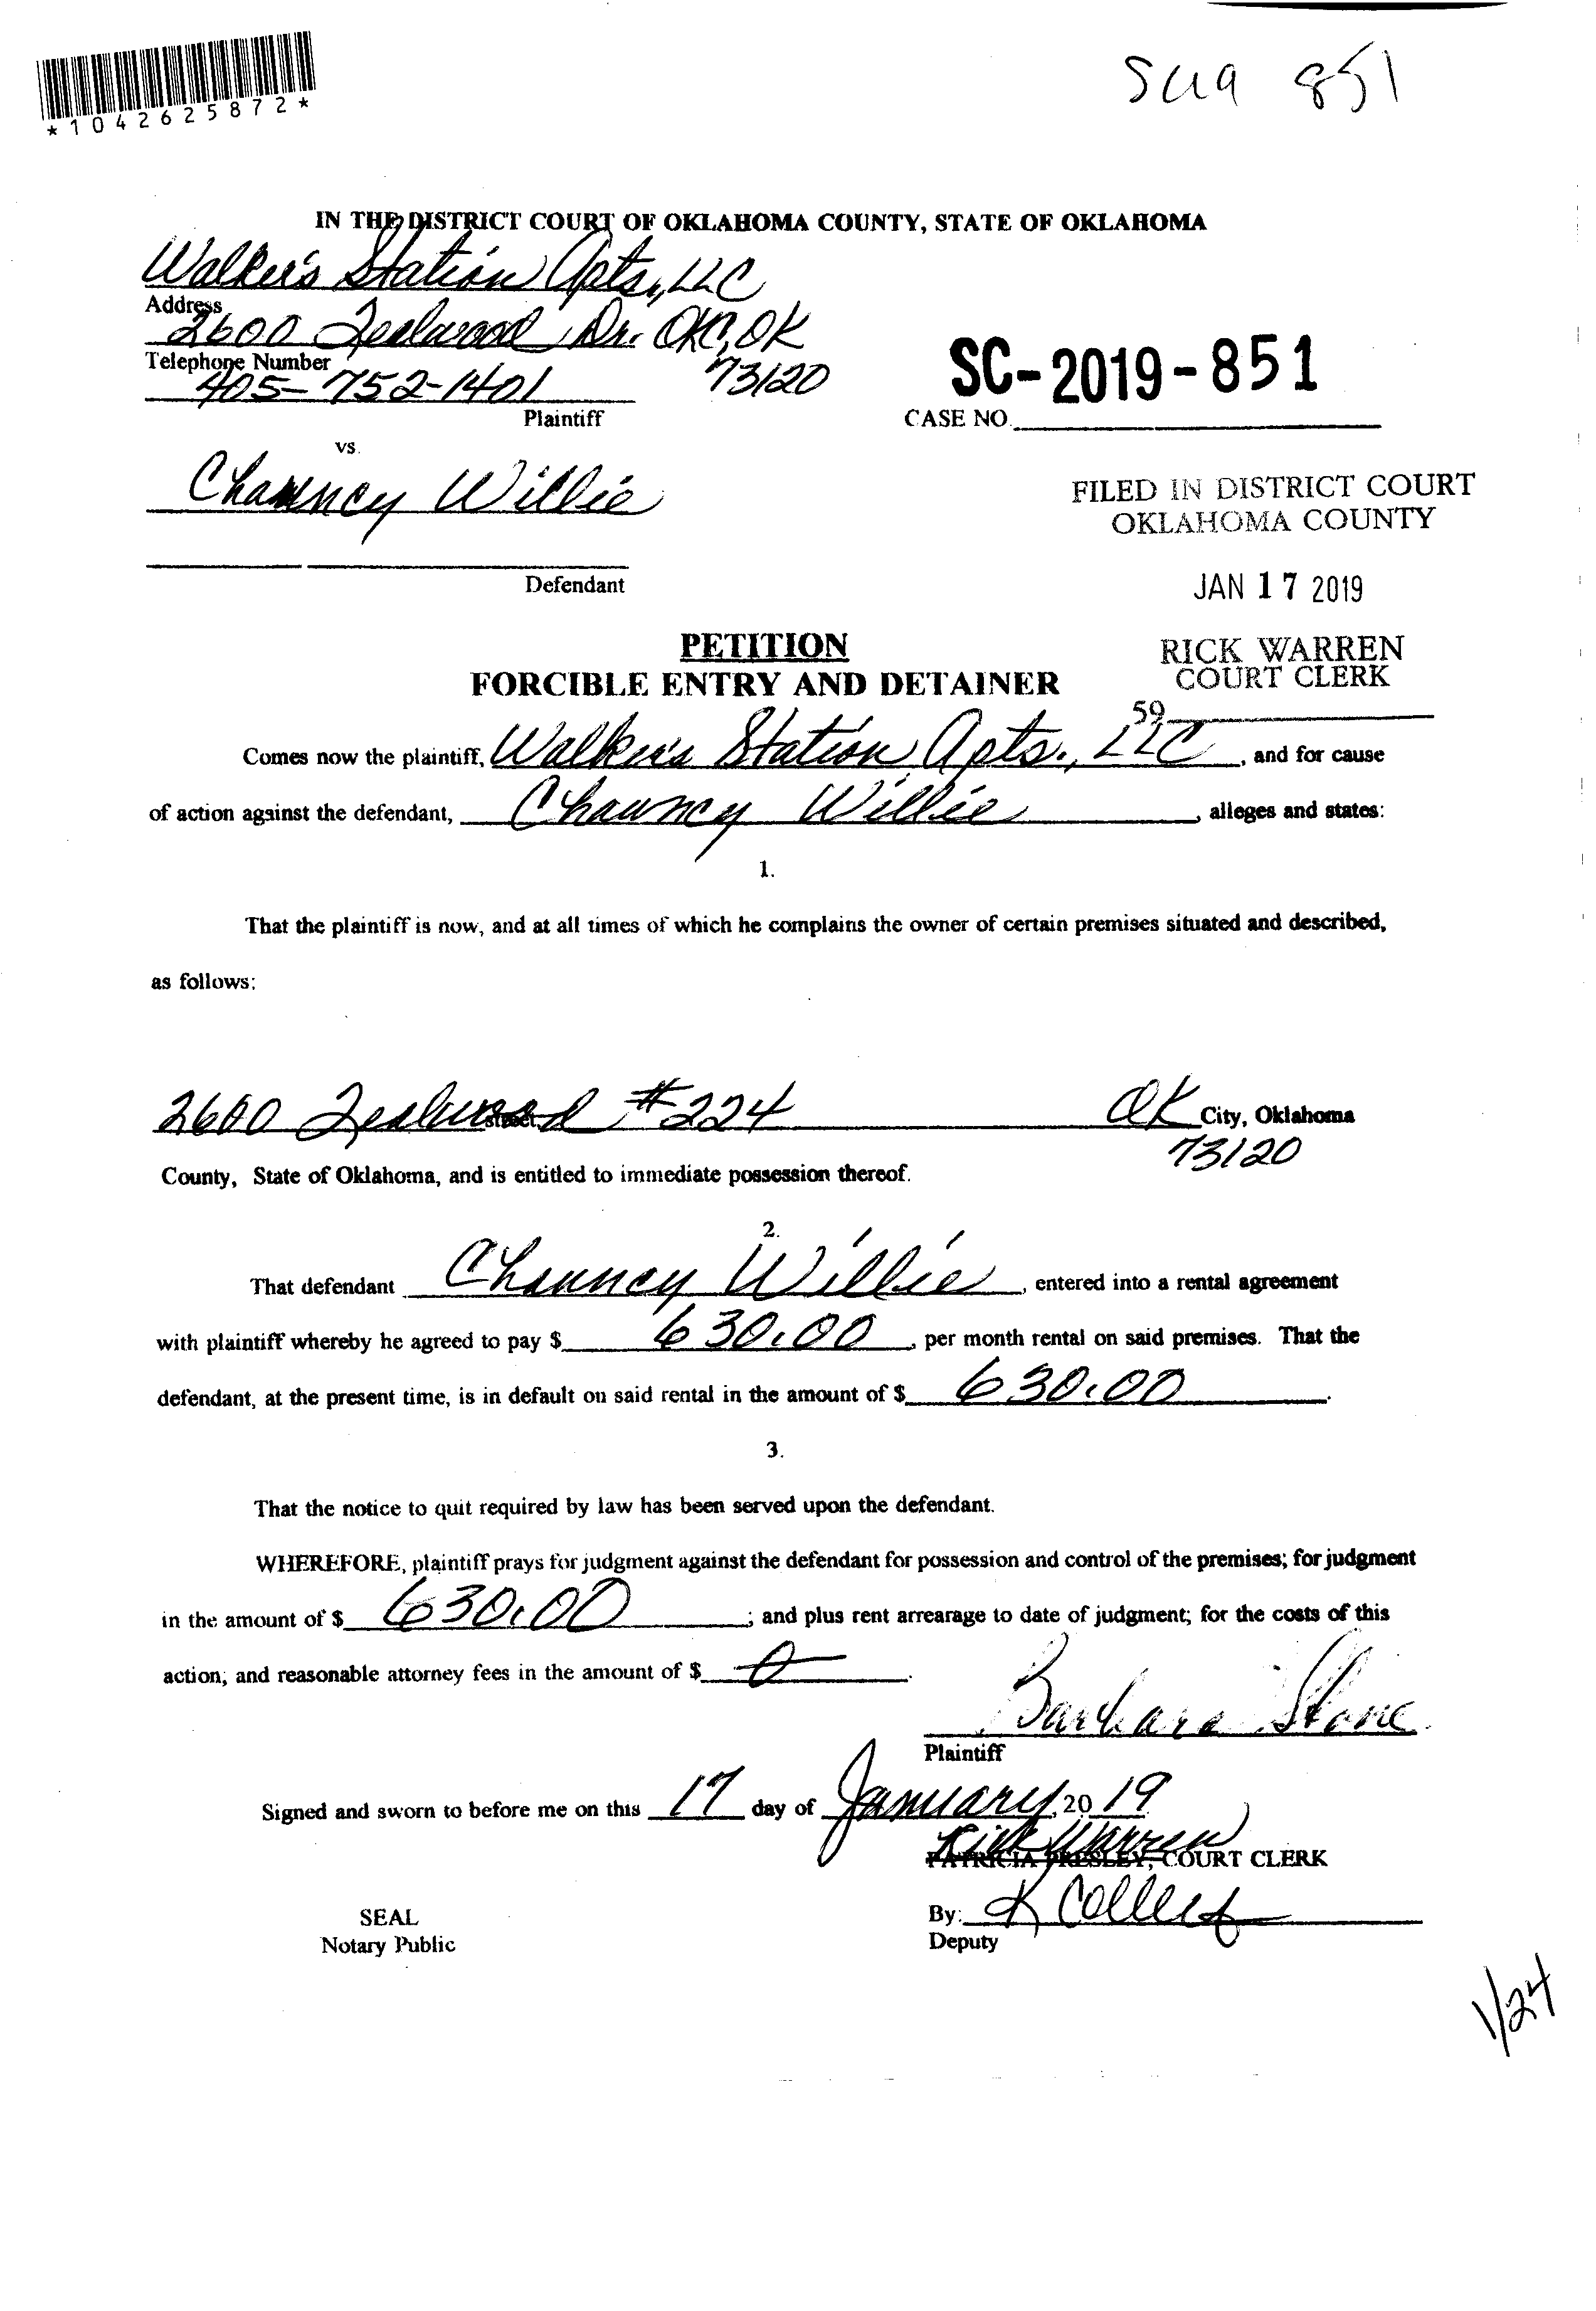 SC19 851
*1042625872*
IN THE DISTRICT COURT OF OKLAHOMA COUNTY, STATE OF OKLAHOMA
Walker's Station Apts., LLC
Address
2600 Tealwood Dr. OKC, OK
73120
Telephone Number
405-752-1401
Plaintiff
SC-2019-851
CASE NO.
vs.
Chauncy Willie
Defendant
FILED IN DISTRICT COURT
OKLAHOMA COUNTY
JAN 17 2019
RICK WARREN
COURT CLERK
59
PETITION
FORCIBLE ENTRY AND DETAINER
Comes now the plaintiff, Walker's Station Apts., LLC, and for cause
of action against the defendant, Chauncy Willie, alleges and states:
1.
That the plaintiff is now, and at all times of which he complains the owner of certain premises situated and described,
as follows:
2600 Tealwood #224 OK City, Oklahoma
Street
73120
County, State of Oklahoma, and is entitled to immediate possession thereof.
2.
That defendant Chauncy Willie, entered into a rental agreement
with plaintiff whereby he agreed to pay $ 630.00, per month rental on said premises. That the
defendant, at the present time, is in default on said rental in the amount of $ 630.00.
3.
That the notice to quit required by law has been served upon the defendant.
WHEREFORE, plaintiff prays for judgment against the defendant for possession and control of the premises; for judgment
in the amount of $ 630.00; and plus rent arrearage to date of judgment; for the costs of this
action; and reasonable attorney fees in the amount of $ 0.
Barbara Stone
Plaintiff
Signed and sworn to before me on this 17 day of January, 2019
Rick Warren
PATRICIA PRESLEY, COURT CLERK
By: K
Deputy
SEAL
Notary Public
1/24